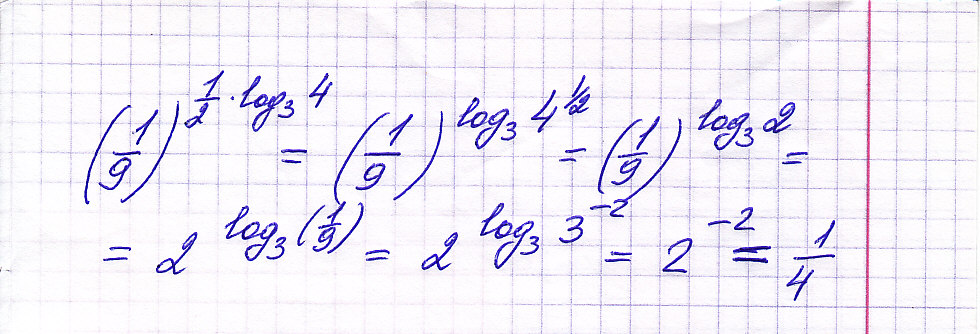 (1/9)^(1/2 · log₃ 4) = (1/9)^(log₃ 4^(1/2)) = (1/9)^(log₃ 2) =
= 2^(log₃ (1/9)) = 2^(log₃ 3^(-2)) = 2^(-2) = 1/4